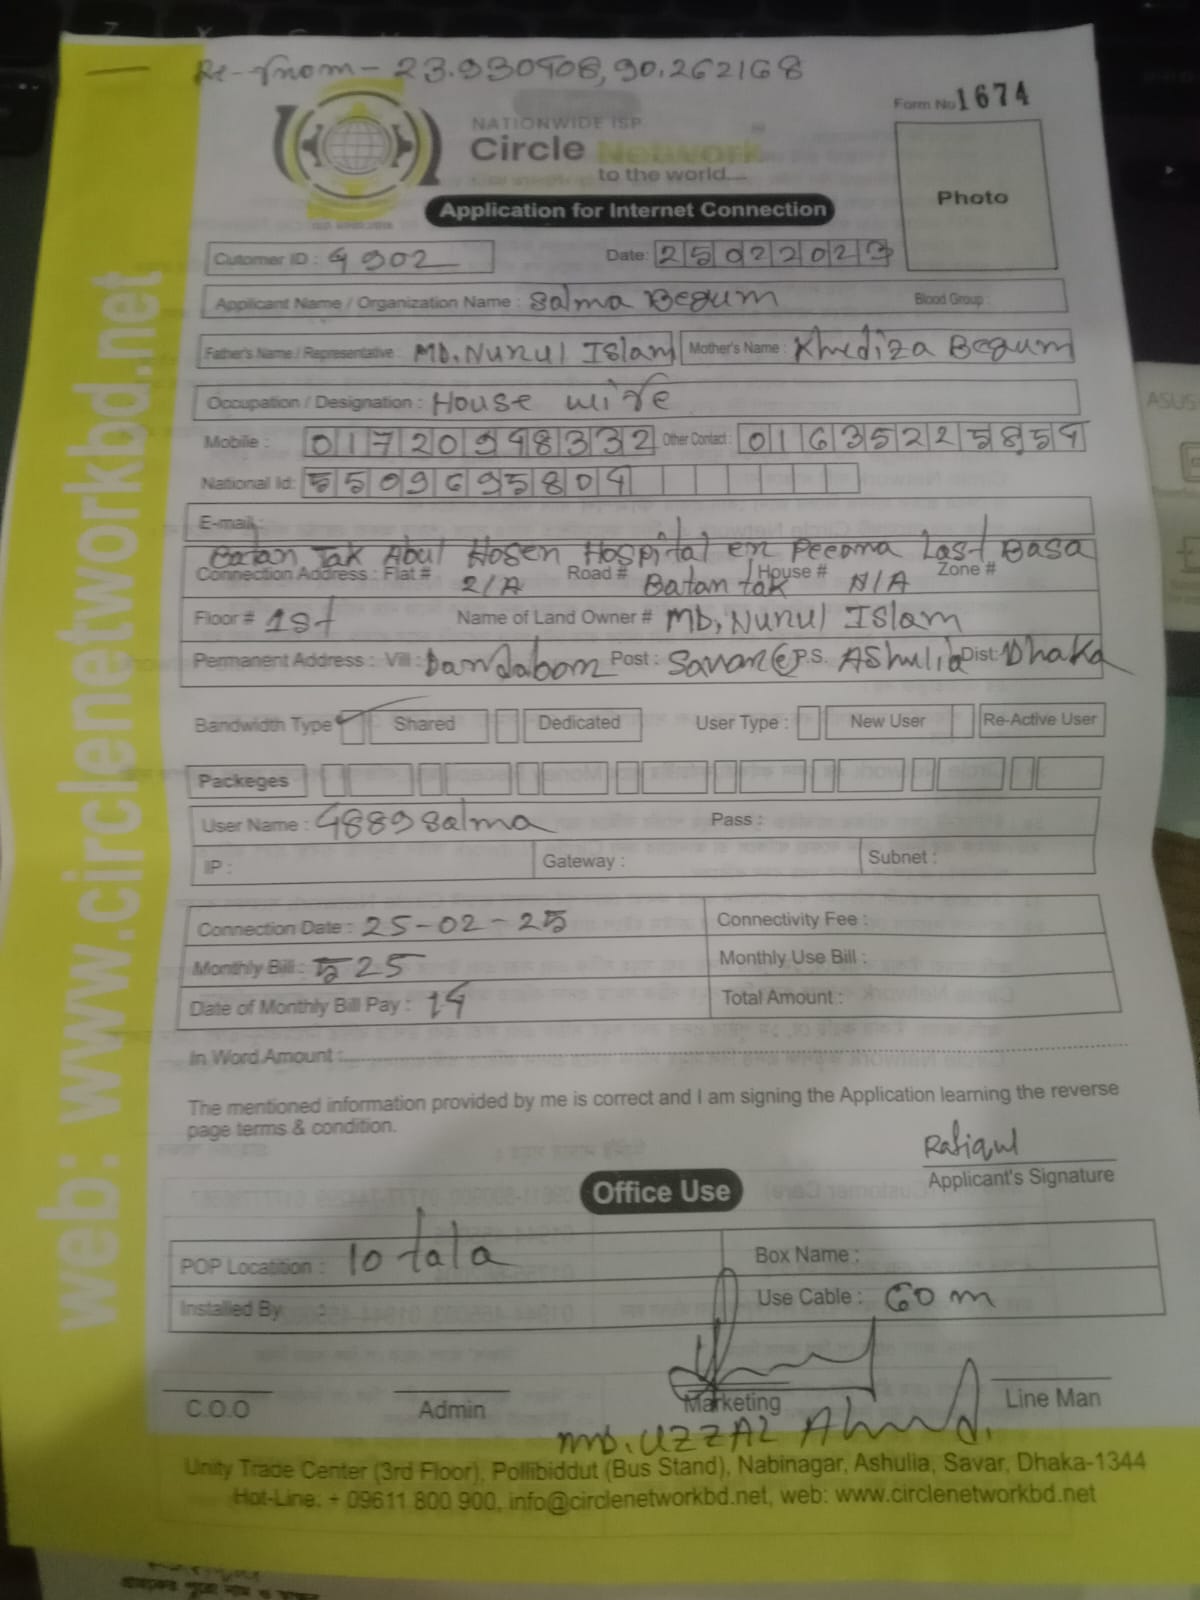 Re-from - 23.930908, 90.262168
Form No 1674
NATIONWIDE ISP
Circle Network
to the world....
Photo
Application for Internet Connection
Cutomer ID : 4902 Date: 2502202
Applicant Name / Organization Name : Salma Begum Blood Group :
Father's Name / Representative : Md. Nurul Islam Mother's Name : Khediza Begum
Occupation / Designation : House wife
Mobile : 01720948332 Other Contact : 01635225854
National Id: 5509695804
E-mail :
Batan Tak Abul Hosen Hospital er Last Basa
Connection Address : Flat # 2/A Road # Batan tak House # N/A Zone #
Floor # 1st Name of Land Owner # Md, Nurul Islam
Permanent Address : Vill : Dandabor Post : Savar P.S. AShulia Dist: Dhaka
Bandwidth Type Shared Dedicated User Type : New User Re-Active User
Packeges
User Name : 4889salma Pass :
IP : Gateway : Subnet :
Connection Date : 25-02-25 Connectivity Fee :
Monthly Bill : 525 Monthly Use Bill :
Date of Monthly Bill Pay : 14 Total Amount :
In Word Amount :
The mentioned information provided by me is correct and I am signing the Application learning the reverse
page terms & condition.
Rafiqul
Applicant's Signature
Office Use
POP Locatition : 10 tala Box Name :
Installed By : Use Cable : 60 m
C.O.O Admin Marketing Line Man
Md. UZZAL Ahmed.
Unity Trade Center (3rd Floor), Pollibiddut (Bus Stand), Nabinagar, Ashulia, Savar, Dhaka-1344
Hot-Line: + 09611 800 900, info@circlenetworkbd.net, web: www.circlenetworkbd.net
web: www.circlenetworkbd.net
ASUS